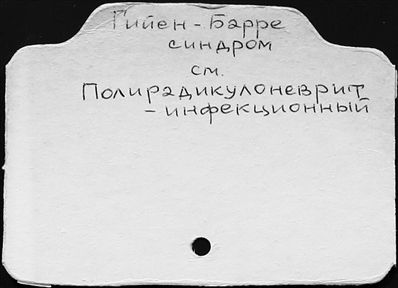 Гийен - Барре
синдром
см.
Полирадикулоневрит
- инфекционный